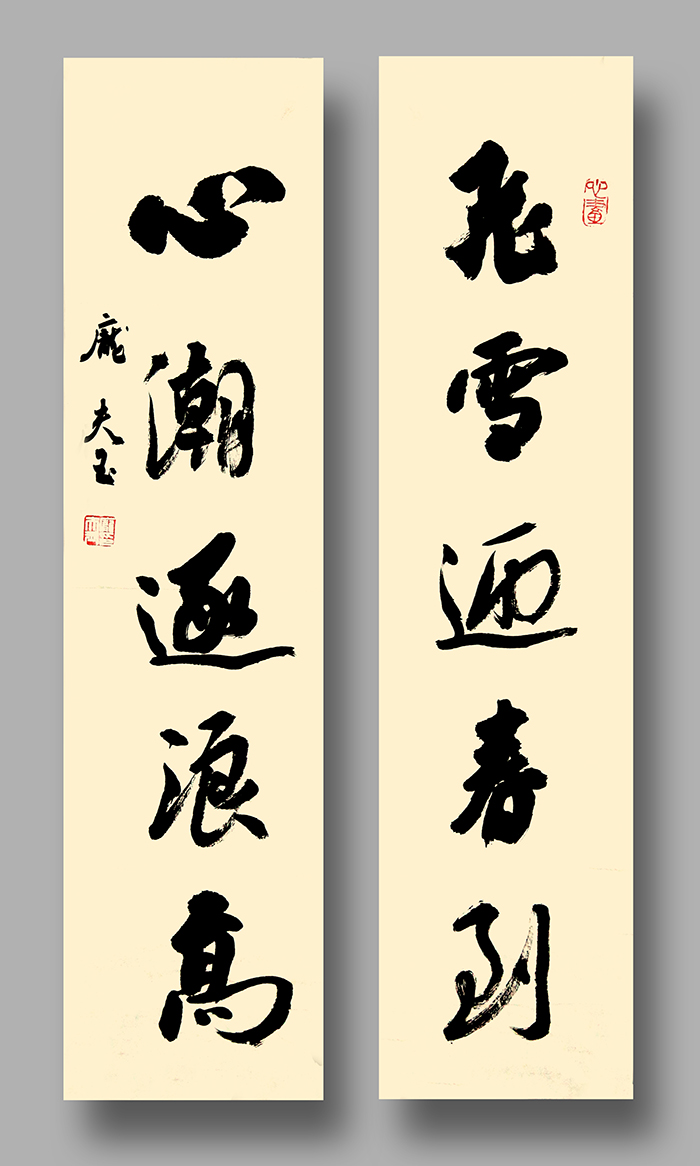 心畫
飛雪迎春到
心潮逐浪高
龐夫玉